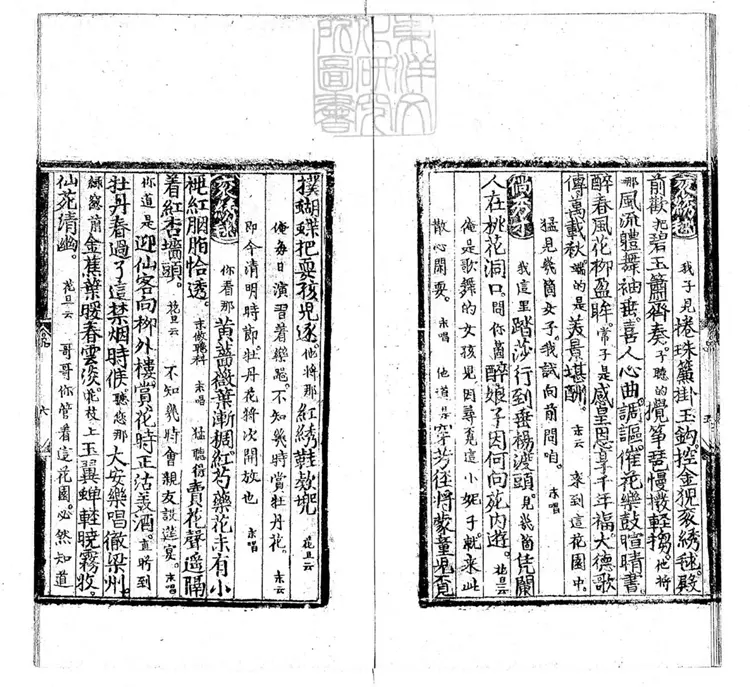 東洋文
化研究
所圖書
滾綉毬 我子見捲珠簾掛玉鈎控金猊滾綉毯殿
前歡把碧玉簫齊奏。子聽的攪箏琶慢撥輕搊。他將
那風流體舞袖垂。喜人心曲調謳。催花樂鼓暄晴晝。
醉春風花柳盈眸。常子是感皇恩享千年福。大德歌
傳萬載秋。端的是美景堪酬。末云 來到這花園中。
猛見幾箇女子。我試向前問咱。 末唱
倘秀才 我這里踏莎行到垂楊渡頭。見幾箇凭闌
人在桃花洞口。問你箇醉娘子因何向苑內遊。 花旦云
俺是歌舞的女孩兒因尋覓這小妮子。就來此
散心閑耍。 末唱 他道是穿芳徑將蒙童兒覓
撲蝴蝶把耍孩兒逐。他將那紅綉鞋款兜 花旦云
俺每日演習着樂器。不知幾時賞牡丹花。 末云
即今清明時節牡丹花將次開放也 末唱
滾綉毬 你看那黃薔薇葉漸稠。紅芍藥花未有小
桃紅胭脂恰透。 末做聽科 末唱 猛聽得賣花聲遥隔
着紅杏墻頭。 花旦云 不知幾時會親友設筵宴。 末唱
你道是迎仙客向柳外樓。賞花時正沽美酒。直吃到
牡丹春過了這禁烟時候。聽您那大安樂唱徹梁州。
綠窓前金蕉葉暖春雲淡。花枝上玉翼蟬輕曉霧收。
仙苑清幽。 花旦云 哥哥你管着這花園。必然知道
六